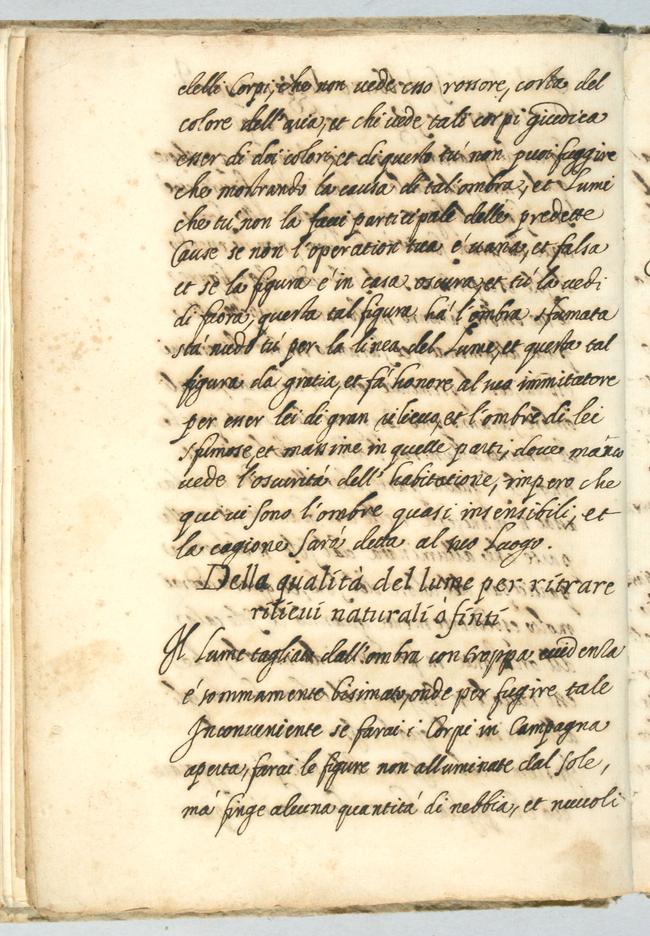 delli Corpi, che non vede esso rossore, corba del
colore dell'aria, et chi vede tali corpi giudica
esser di doi colori, et di questo tu' non puoi fuggire
che mostrando la causa di tal'ombra, et Lumi
che tu' non la facci participale delle predette
Cause se non l'operation tua e uana, et falsa
et se la figura é in casa oscura, et tu' la uedi
di fuora, questa tal figura há l'ombra sfumata
stá nedo tú per la linea del Lume, et questa tal
figura da gratia, et fá honore al suo immitatore
per esser lei di gran rilieuo, et l'ombre di lei
sfumose, et massime in quelle parti, doue manco
uede l'oscuritá dell'habitatione, impero che
qui ui sono l'ombre quasi insensibili, et
la cagione sará detta al suo Luogo.
Della qualitá del lume per ritrare
rilieui naturali ò finti
Il Lume tagliato dall'ombra con troppa euidenza
é sommamente bisimato, onde per fugire tale
Inconueniente se farai i Corpi in Campagna
aperta, farai le figure non alluminate dal Sole,
má finge alcuna quantitá di nebbia, et nuuoli